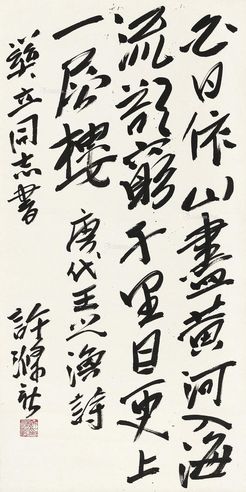 白日依山盡黄河入海
流欲窮千里目更上
一层樓 唐代王之渙詩
龚立同志書
許滌新